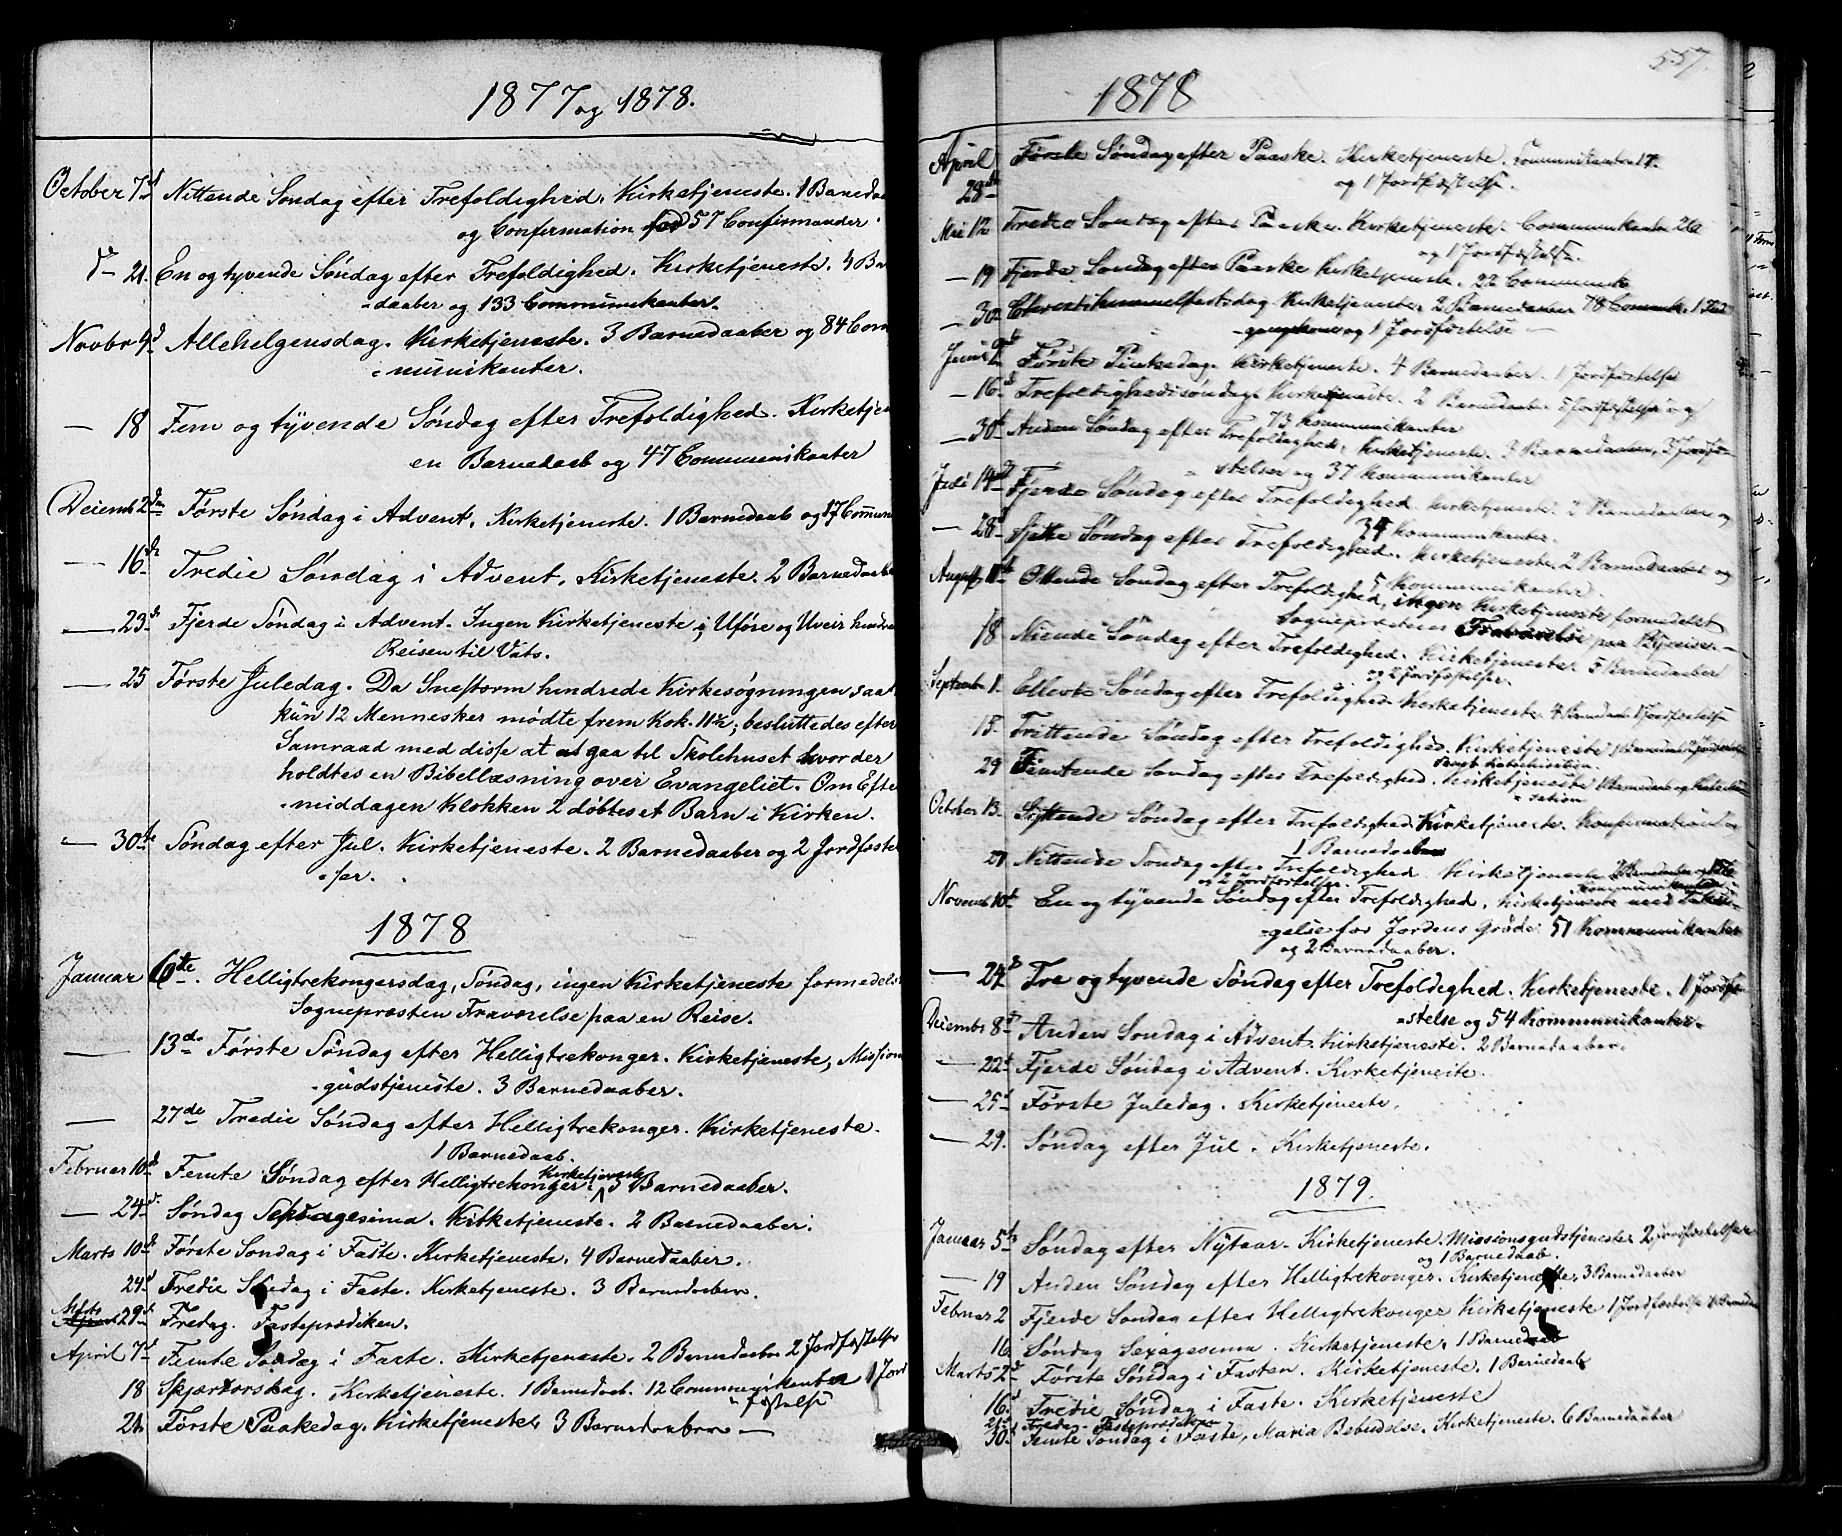 1877 og 1878.
October 7d Nittende Søndag efter Trefoldighed. Kirketjeneste. 1 Barnedaa
og Confirmation 57 Confirmander
d— 21. En og tyvende Søndag efter Trefoldighed. Kirketjeneste. 4 Bar
-daaber og 133 Communikanter.
Novbr 4d Allehelgensdag. Kirketjeneste. 3 Barnedaaber og 84 Com
-munikanter.
— 18 Fem og tyvende Søndag efter Trefoldighed. Kirketjen
en Barnedaab og 47 Communikanter
Decemb 2den Første Søndag i Advent. Kirketjeneste. 1 Barnedaab og 17 Commun
— 16de Tredie Søndag i Advent. Kirketjeneste. 2 Barnedaabe
— 23d Fjerde Søndag i Advent. Ingen Kirketjeneste, Uføre og Uveir hindre
Reisen til Vats.
— 25 Første Juledag. Da Snestorm hindrede Kirkesøgningen saa
kun 12 Mennesker mødte frem Kok. 11½, besluttedes efter
Samraad med disse at gaa til Skolehuset hvor der
holdtes en Bibellæsning over Evangeliet. Om Efter
-middagen Klokken 2 døbtes et Barn i Kirken.
— 30te Søndag efter Jul. Kirketjeneste. 2 Barnedaaber og 2 Jordfæstel
-ser.
1878
Januar 6te. Helligtrekongersdag, Søndag, ingen Kirketjeneste formedelst
Sognepræsten Fraværelse paa en Reise.
— 13de Første Søndag efter Helligtrekonger. Kirketjeneste, Mission
-gudstjeneste. 3 Barnedaaber.
— 27de Tredie Søndag efter Helligtrekonger. Kirketjeneste.
1 Barnedaab.
Februar 10d Femte Søndag efter Helligtrekonger. Kirketjeneste 3 Barnedaaber.
— 24d. Søndag Septuagesima. Kirketjeneste. 2 Barnedaaber.
Marts 10d Første Søndag i Faste. Kirketjeneste. 4 Barnedaaber.
24d Tredie Søndag i Faste. Kirketjeneste. 3 Barnedaaber.
Marts 29d Fredag. Fasteprædiken.
April 7d Femte Søndag i Faste. Kirketjeneste. 2 Barnedaaber 2 Jordfæstelser
18 Skjærtorsdag. Kirketjeneste. 1 Barnedaab. 12 Communikanter 1 Jord
-fæstelse
21. Første Paaskedag. Kirketjeneste, 3 Barnedaaber —
557.
1878
April 28de Første Søndag efter Paaske. Kirketjeneste. Communikanter 17.
og 1 Jordfæstelse.
Mai 12 Tredie Søndag efter Paaske. Kirketjeneste. Communikanter 26
og 1 Jordfæstelse.
— 19 Fjerde Søndag efter Paaske Kirketjeneste. 22 Communik
— 30 Christi himmelfartsdag. Kirketjeneste. 2 Barnedaaber 78 Commk.
og 1 Jordfæstelse —
Juni Første Pintsedag. Kirketjeneste. 4 Barnedaaber. 1 Jordfæstelse
— 16d Trefoldighedssøndag. Kirketjeneste. 2 Barnedaaber Jordfæstelse og
73 Kommunikanter
— 30d Anden Søndag efter Trefoldighed. Kirketjeneste. 2 Barnedaaber, 3 Jordfæ
-stelser og 37 Kommunikanter
Juli 14d Fjerde Søndag efter Trefoldighed. Kirketjeneste. 2 Barnedaaber og
34 Kommunikanter.
— 28d Sjette Søndag efter Trefoldighed. Kirketjeneste 2 Barnedaaber og
5 Kommunikanter.
August 11te Ottende Søndag efter Trefoldighed, ingen Kirketjeneste formedelst
Sognepræstens Fraværelse paa Reiser.
18 Niende Søndag efter Trefoldighed. Kirketjeneste 5 Barnedaaber
og 2 Jordfæstelser.
September 1. Ellevte Søndag efter Trefoldighed Kirketjeneste 4 Barnedaab 1 Jordfæstelse
15. Trettende Søndag efter Trefoldighed. Kirketjeneste
samt Katechisation.
29 Femtende Søndag efter Trefoldighed. Kirketjeneste Barnedaab og Kateki
-sation
October 13. Syttende Søndag efter Trefoldighed. Kirketjeneste. Konfirmation
1 Barnedaab
27 Nittende Søndag efter Trefoldighed. Kirketjeneste Barnedaaber og
og 2 Jordfæstelser. Kommunikanter
Novemb 10d En og tyvende Søndag efter Trefoldighed, Kirketjeneste med Taksi-
-gelse for Jordens Grøde. 51 Kommunikanter
og 2 Barnedaaber.
— 24d Tre og tyvende Søndag efter Trefoldighed. Kirketjeneste. 1 Jordfæ
-stelse og 54 Kommunikanter.
Decembr 8d Anden Søndag i Advent. Kirketjeneste. 2 Barnedaaber.
— 22d Fjerde Søndag i Advent. Kirketjeneste.
— 25d Første Juledag. Kirketjeneste.
— 29. Søndag efter Jul. Kirketjeneste.
1879.
Januar 5te Søndag efter Nytaar. Kirketjeneste. Missionsgudstjeneste 2 Jordfæstelser
og 1 Barnedaab.
— 19 Anden Søndag efter Helligtrekonger. Kirketjeneste, 3 Barnedaaber
Februar 2 Fjerde Søndag efter Helligtrekonger Kirketjeneste 1 Jordfæstelse
16. Søndag Sexagesima. Kirketjeneste, 1 Barnedaab
Marts 2d Første Søndag i Fasten. Kirketjeneste. 1 Barnedaab
16d Tredie Søndag i Faste. Kirketjeneste
21d Fredag. Fasteprædiken
30d Femte Søndag i Faste, Maria Bebudelse. Kirketjeneste. 6 Barnedaaber